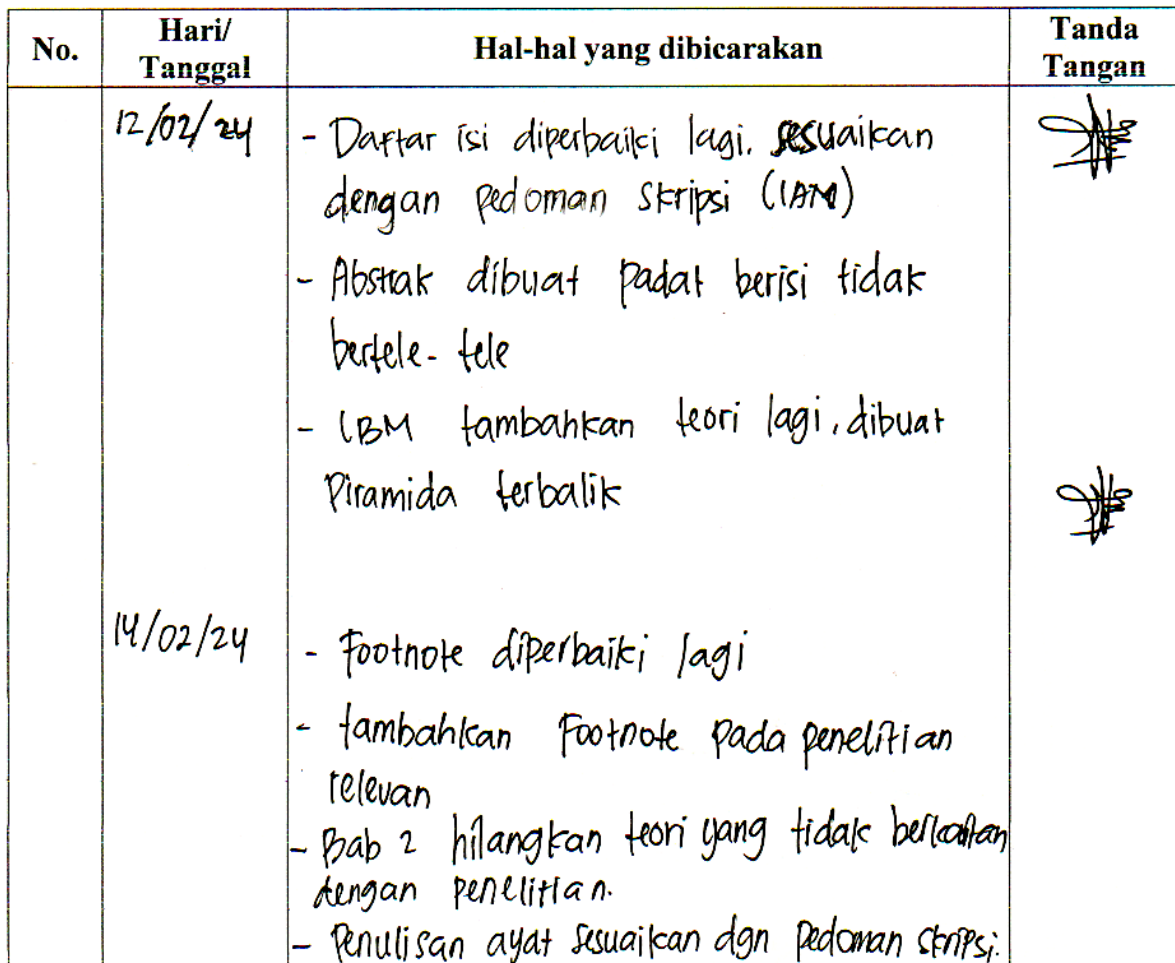 No.
Hari/
Tanggal
Hal-hal yang dibicarakan
Tanda
Tangan
12/02/24
- Daftar isi diperbaiki lagi. sesuaikan
dengan pedoman skripsi (IAM)
- Abstrak dibuat padat berisi tidak
bertele-tele
- LBM tambahkan teori lagi, dibuat
Piramida terbalik
14/02/24
- Footnote diperbaiki lagi
- tambahkan Footnote pada penelitian
relevan
- Bab 2 hilangkan teori yang tidak berkaitan
dengan penelitian.
- Penulisan ayat sesuaikan dgn pedoman skripsi.